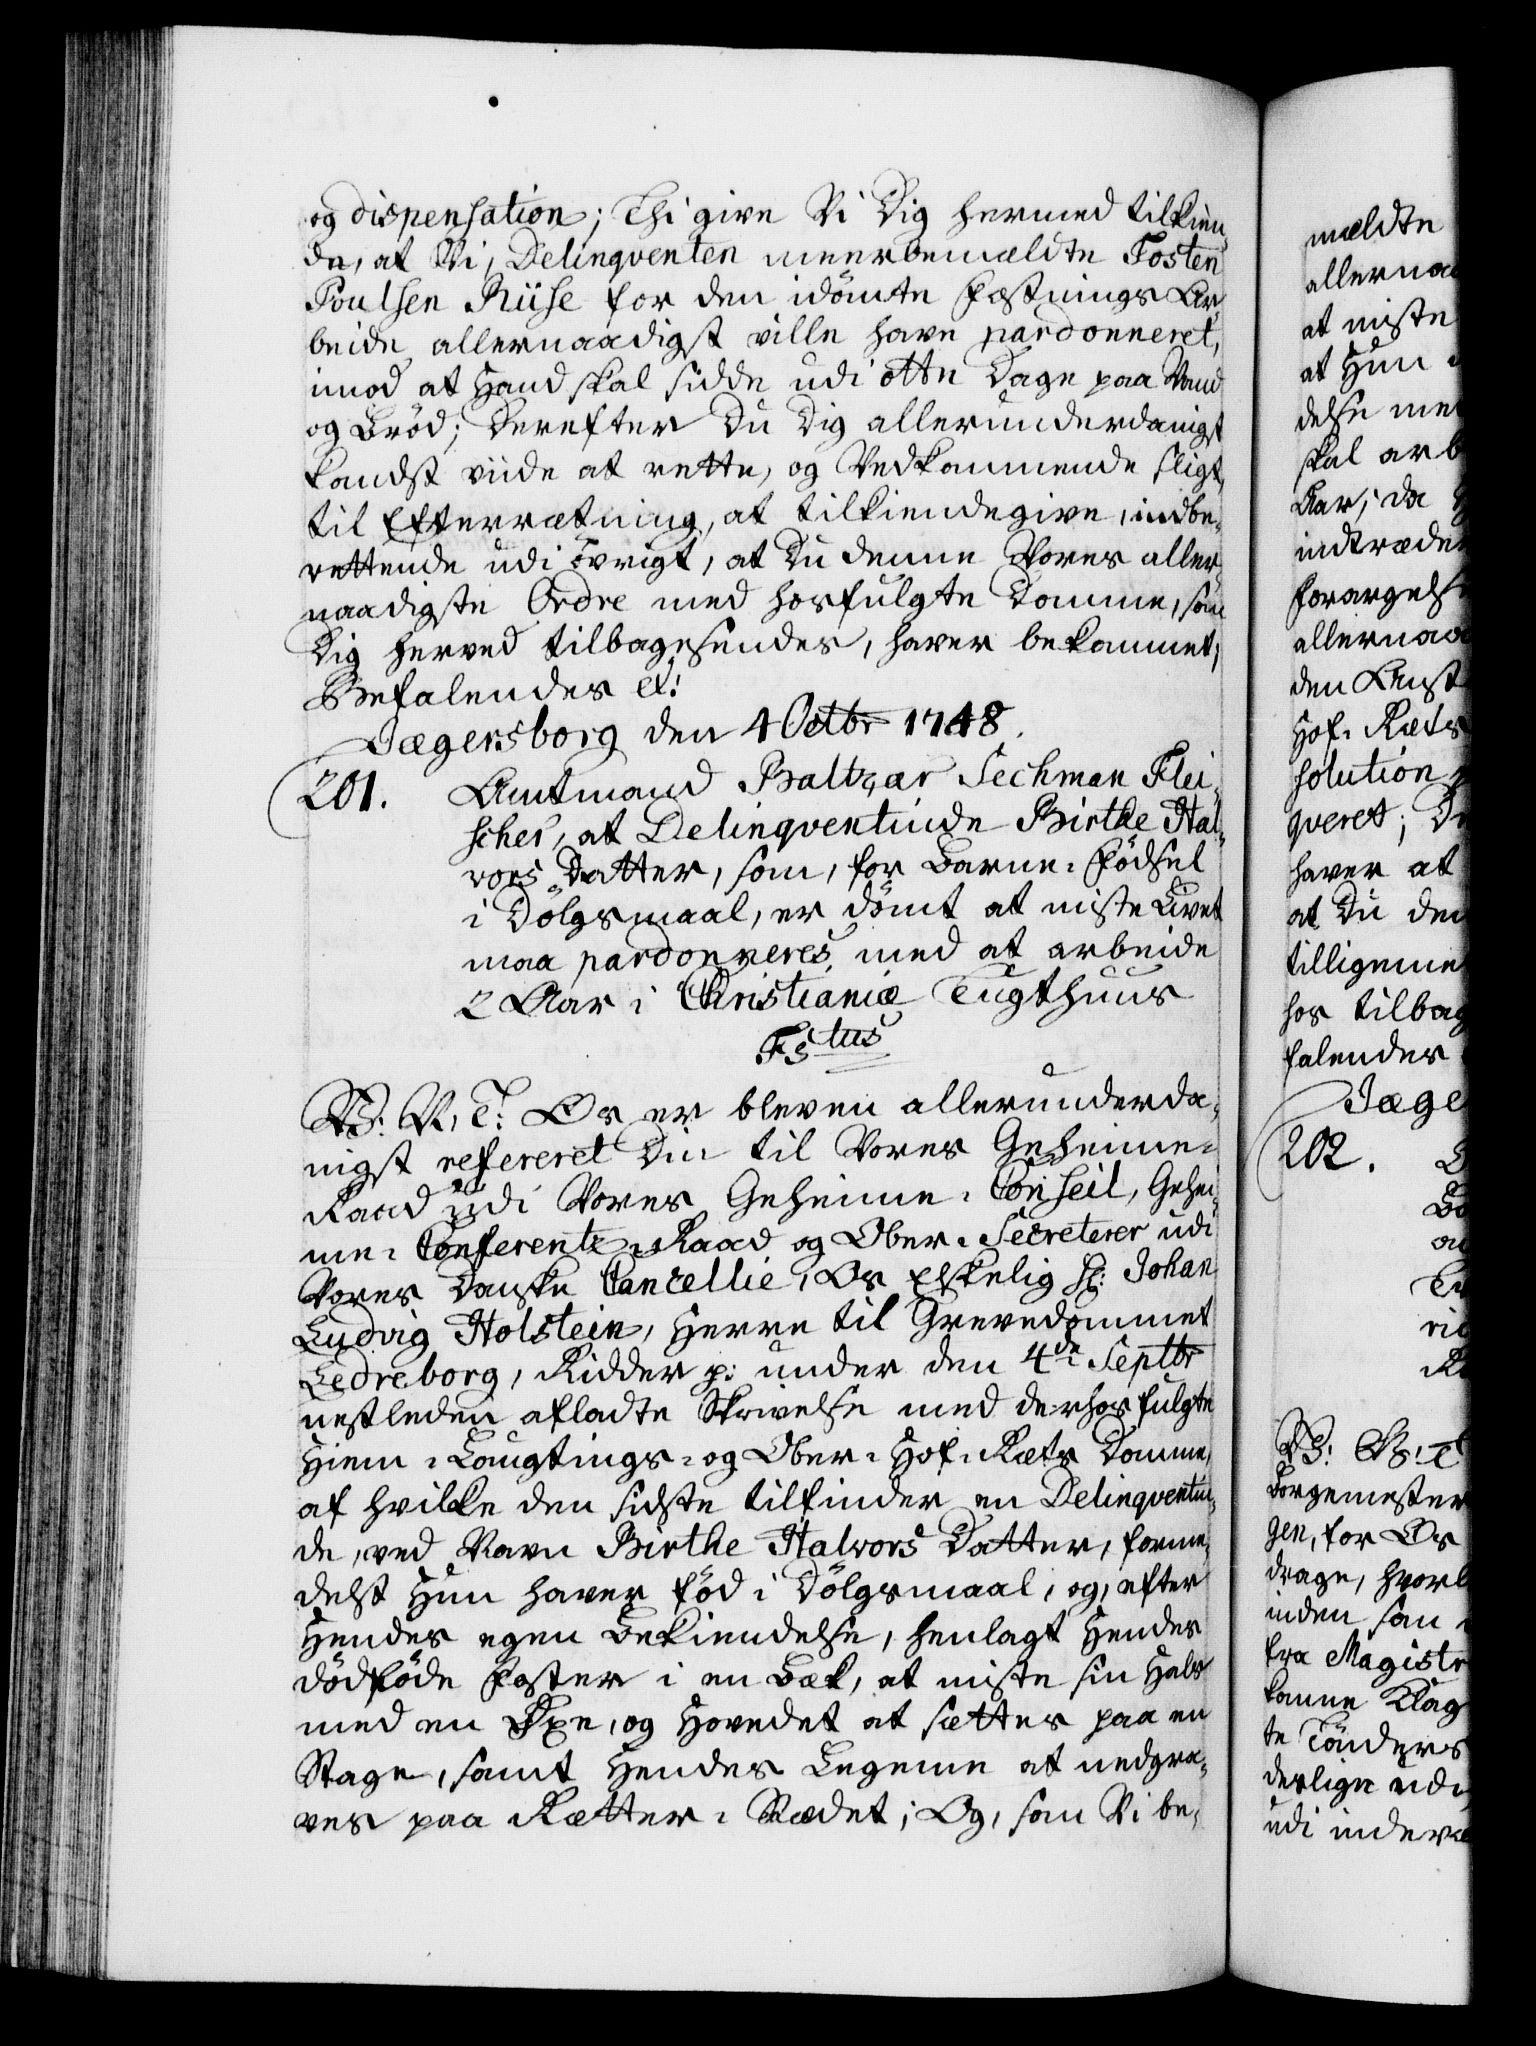 og dispensation; Thi give Vi Dig hermed tilkien¬
de, at Vi, Delinqventen meerbemældte Tosten
Poulsen Riise for den idömte Fæstnings Ar¬
beide allernaadigst ville have pardonneret,
imod at Hand skal sidde udi otte Dage paa Vand
og Bröd; Derefter Du Dig allerunderdanigst
kandst viide at rette, og Vedkommende sligt,
til Efterrætning, at tilkiendegive, indbe¬
rettende udi övrigt, at Du denne Vores aller¬
naadigste Ordre med hosfulgte Domme, som
Dig herved tilbagesendes, haver bekommet;
Befalendes etc:
Jægersborg den 4 Octbr 1748.
201. Amtmand Baltzar Sechman Flei¬
scher, at Delinqventinde Birthe Hal¬
vors Datter, som, for Barne-Födsel
i Dölgsmaal, er dömt at miste Livet
maa pardonneres, med at arbeide
2 Aar i Christianiæ Tugthuus
F5tus
V. V. T: Os er bleven allerunderda¬
nigst refereret Din til Vores Geheime-
Raad udi Vores Geheime-Conseil, Gehei¬
me-Conferentz-Raad og Ober-Secreterer udi
Vores Danske Cancellie, Os Elskelig Hr: Johan
Ludvig Holstein, Herre til Grevedommet
Ledreborg, Ridder p: under den 4de Septbr
nestleden afladte Skrivelse med derhosfulgte
Hiem-Laugtings- og Ober-Hof-Rets Domme,
af hvilke den sidste tilfinder en Delinqventin¬
de, ved Navn Birthe Halvors Datter, forme¬
delst Hun haver föd i Dölgsmaal, og, efter
Hendes egen Bekiendelse, henlagt Hendes
dödföde Foster i en Bæk, at miste sin Hals
med en Öxe, og Hovedet at sættes paa en
Stage, samt Hendes Legeme at nedgra¬
ves paa Rætter-Stædet; Og, som Vi be¬
mældte
allernaa
at miste
at Hun
delse me
skal arb
Aar; da
indtræde
Forargels
allernaa
den Anst
Hof-Rets
solution
qveret; De
haver at
at Du den
tilligeme
hos tilbag
falendes
Jæge
202.
V: V: T
Borgemester
gen, for Os
drage, hvorl
inden som
fra Magistr
komme Klag
te Tönders
derlige udi
udi indevæ